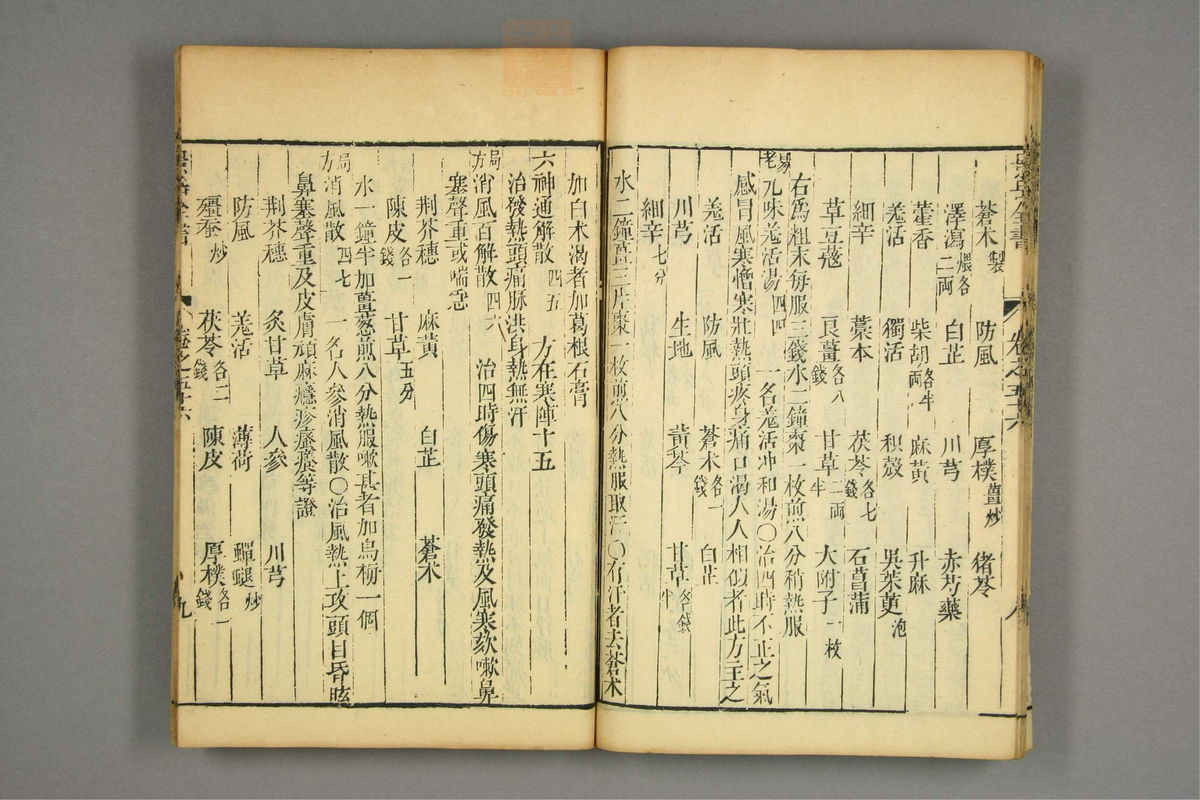 蒼朮製 防風 厚樸薑炒 猪苓
澤瀉煨各二両 白芷 川芎 赤芍藥
藿香 柴胡各半両 麻黄 升麻
羗活 獨活 枳殼 吳茱萸泡
細辛 藁本 茯苓各七錢 石菖蒲
草豆蔲 良薑各八錢 甘草二両半 大附子一枚
右爲粗末每服三錢水二鐘棗一枚煎八分稍熱服
易老九味羗活湯四四 一名羗活冲和湯○治四時不正之氣
感冒風寒憎寒壯熱頭疼身痛口渴人人相似者此方主之
羗活 防風 蒼朮各一錢 白芷
川芎 生地 黃芩 甘草各錢半
細辛七分
水二鐘薑三片棗一枚煎八分熱服取汗○有汗者去蒼朮
加白朮渴者加葛根石膏
六神通解散四五 方在寒陣十五
治發熱頭痛脉洪身熱無汗
局方消風百解散四六 治四時傷寒頭痛發熱及風寒欬嗽鼻
塞聲重或喘急
荆芥穗 麻黄 白芷 蒼朮
陳皮各一錢 甘草五分
水一鐘半加薑葱煎八分熱服嗽甚者加烏梅一個
局方消風散四七 一名人參消風散○治風熱上攻頭目昏眩
鼻塞聲重及皮膚頑麻癮疹瘙痒等證
荆芥穗 炙甘草 人參 川芎
防風 羗活 薄荷 蟬蛻炒
殭蚕炒 茯苓各二錢 陳皮 厚樸各一錢
景岳全書 卷之五十六 八
景岳全書 卷之五十六 九